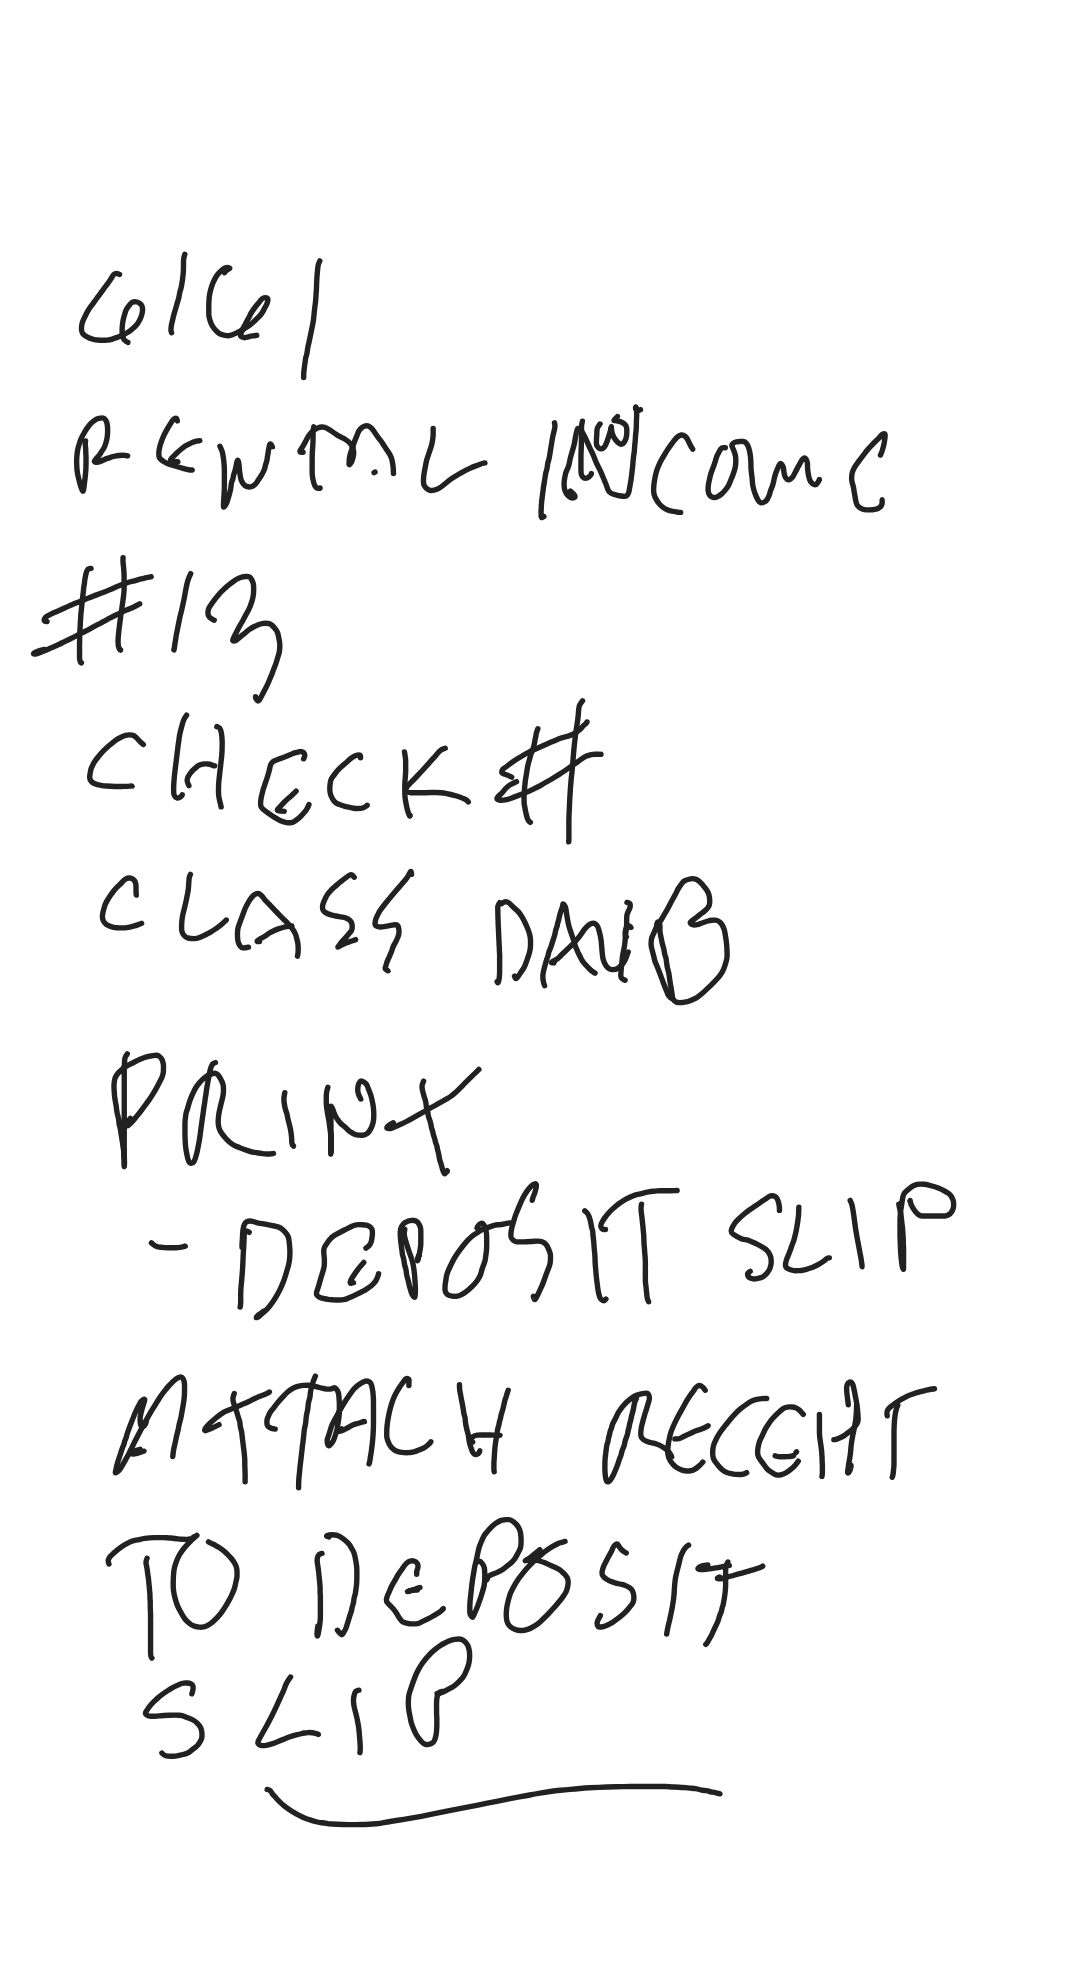 6161
RENTAL INCOME
#13
CHECK #
CLASS
PRINT
- DEPOSIT SLIP
ATTACH RECEIPT
TO DEPOSIT
SLIP